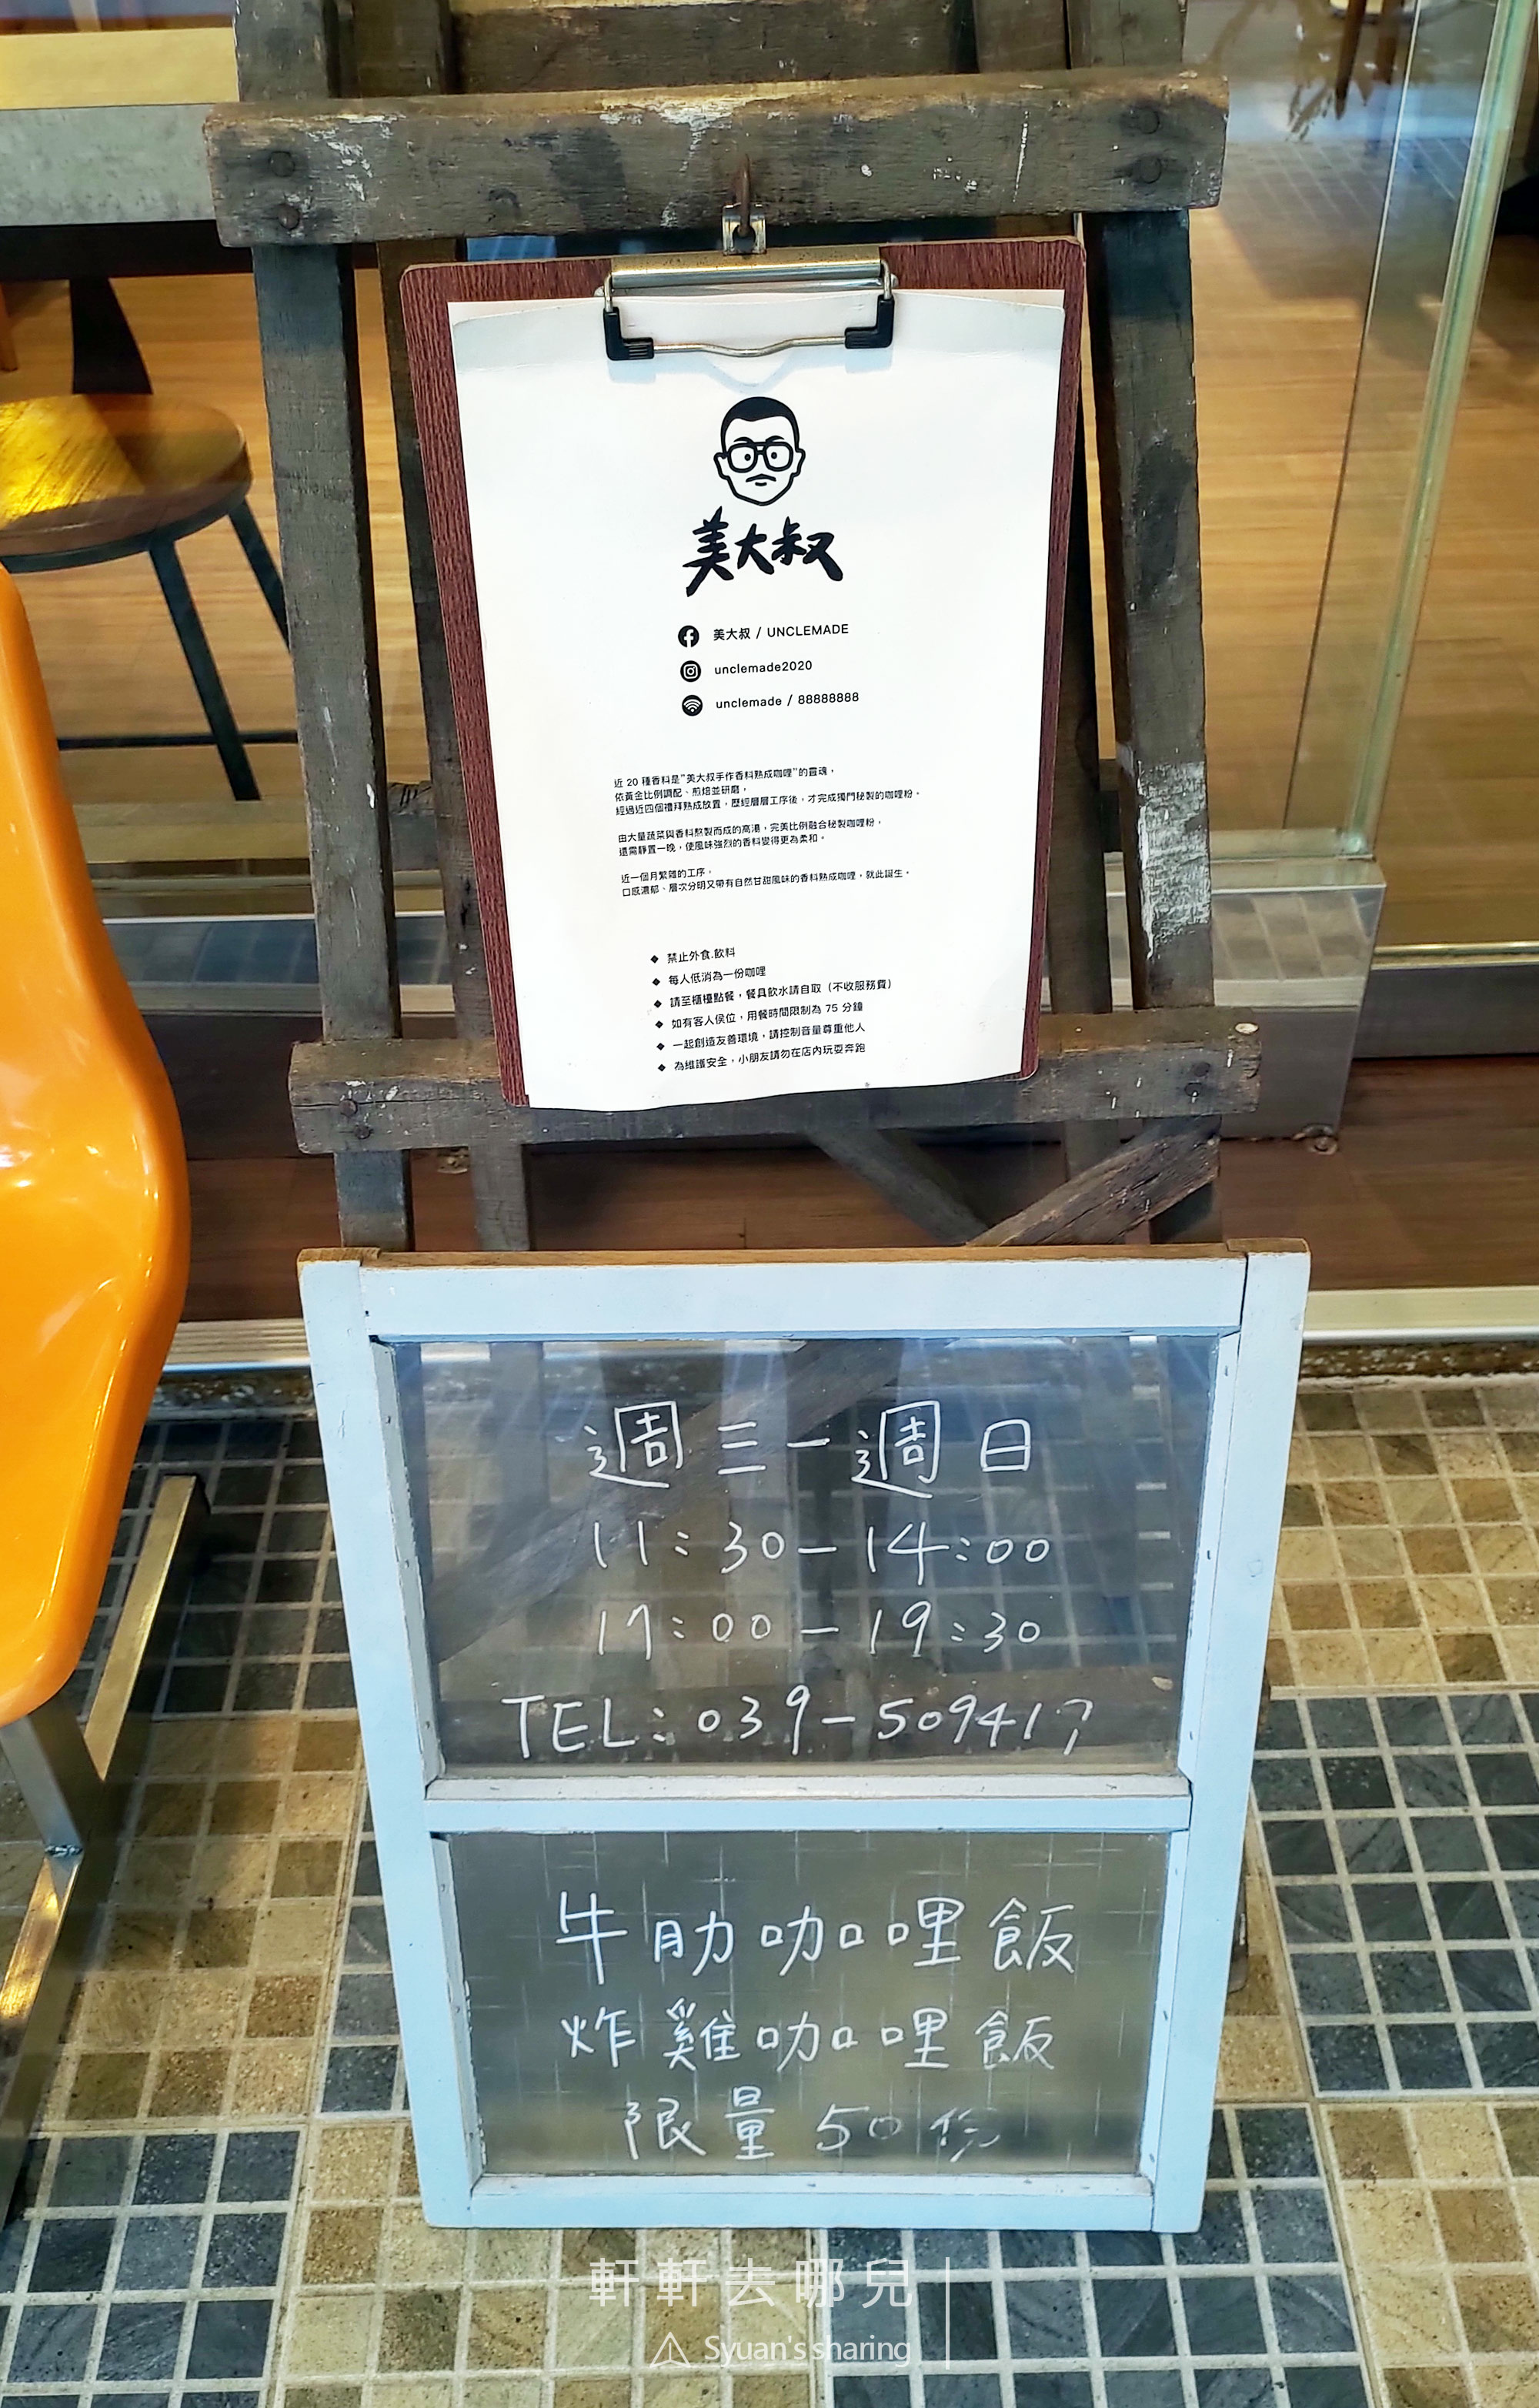 美大叔
美大叔 / UNCLEMADE
unclemade2020
unclemade / 88888888
近 20 種香料是"美大叔手作香料熟成咖哩"的靈魂，
依黃金比例調配、煎焙並研磨，
經過近四個禮拜熟成放置，歷經層層工序後，才完成獨門秘製的咖哩粉。
由大量蔬菜與香料熬製而成的高湯，完美比例融合秘製咖哩粉，
還需靜置一晚，使風味強烈的香料變得更為柔和。
近一個月繁雜的工序，
口感濃郁、層次分明又帶有自然甘甜風味的香料熟成咖哩，就此誕生。
❖ 禁止外食.飲料
❖ 每人低消為一份咖哩
❖ 請至櫃檯點餐，餐具飲水請自取（不收服務費）
❖ 如有客人侯位，用餐時間限制為 75 分鐘
❖ 一起創造友善環境，請控制音量尊重他人
❖ 為維護安全，小朋友請勿在店內玩耍奔跑
週三－週日
11：30－14：00
17：00－19：30
TEL：039－509417
牛肋咖哩飯
炸雞咖哩飯
限量 50 份
軒軒去哪兒
Syuan's sharing